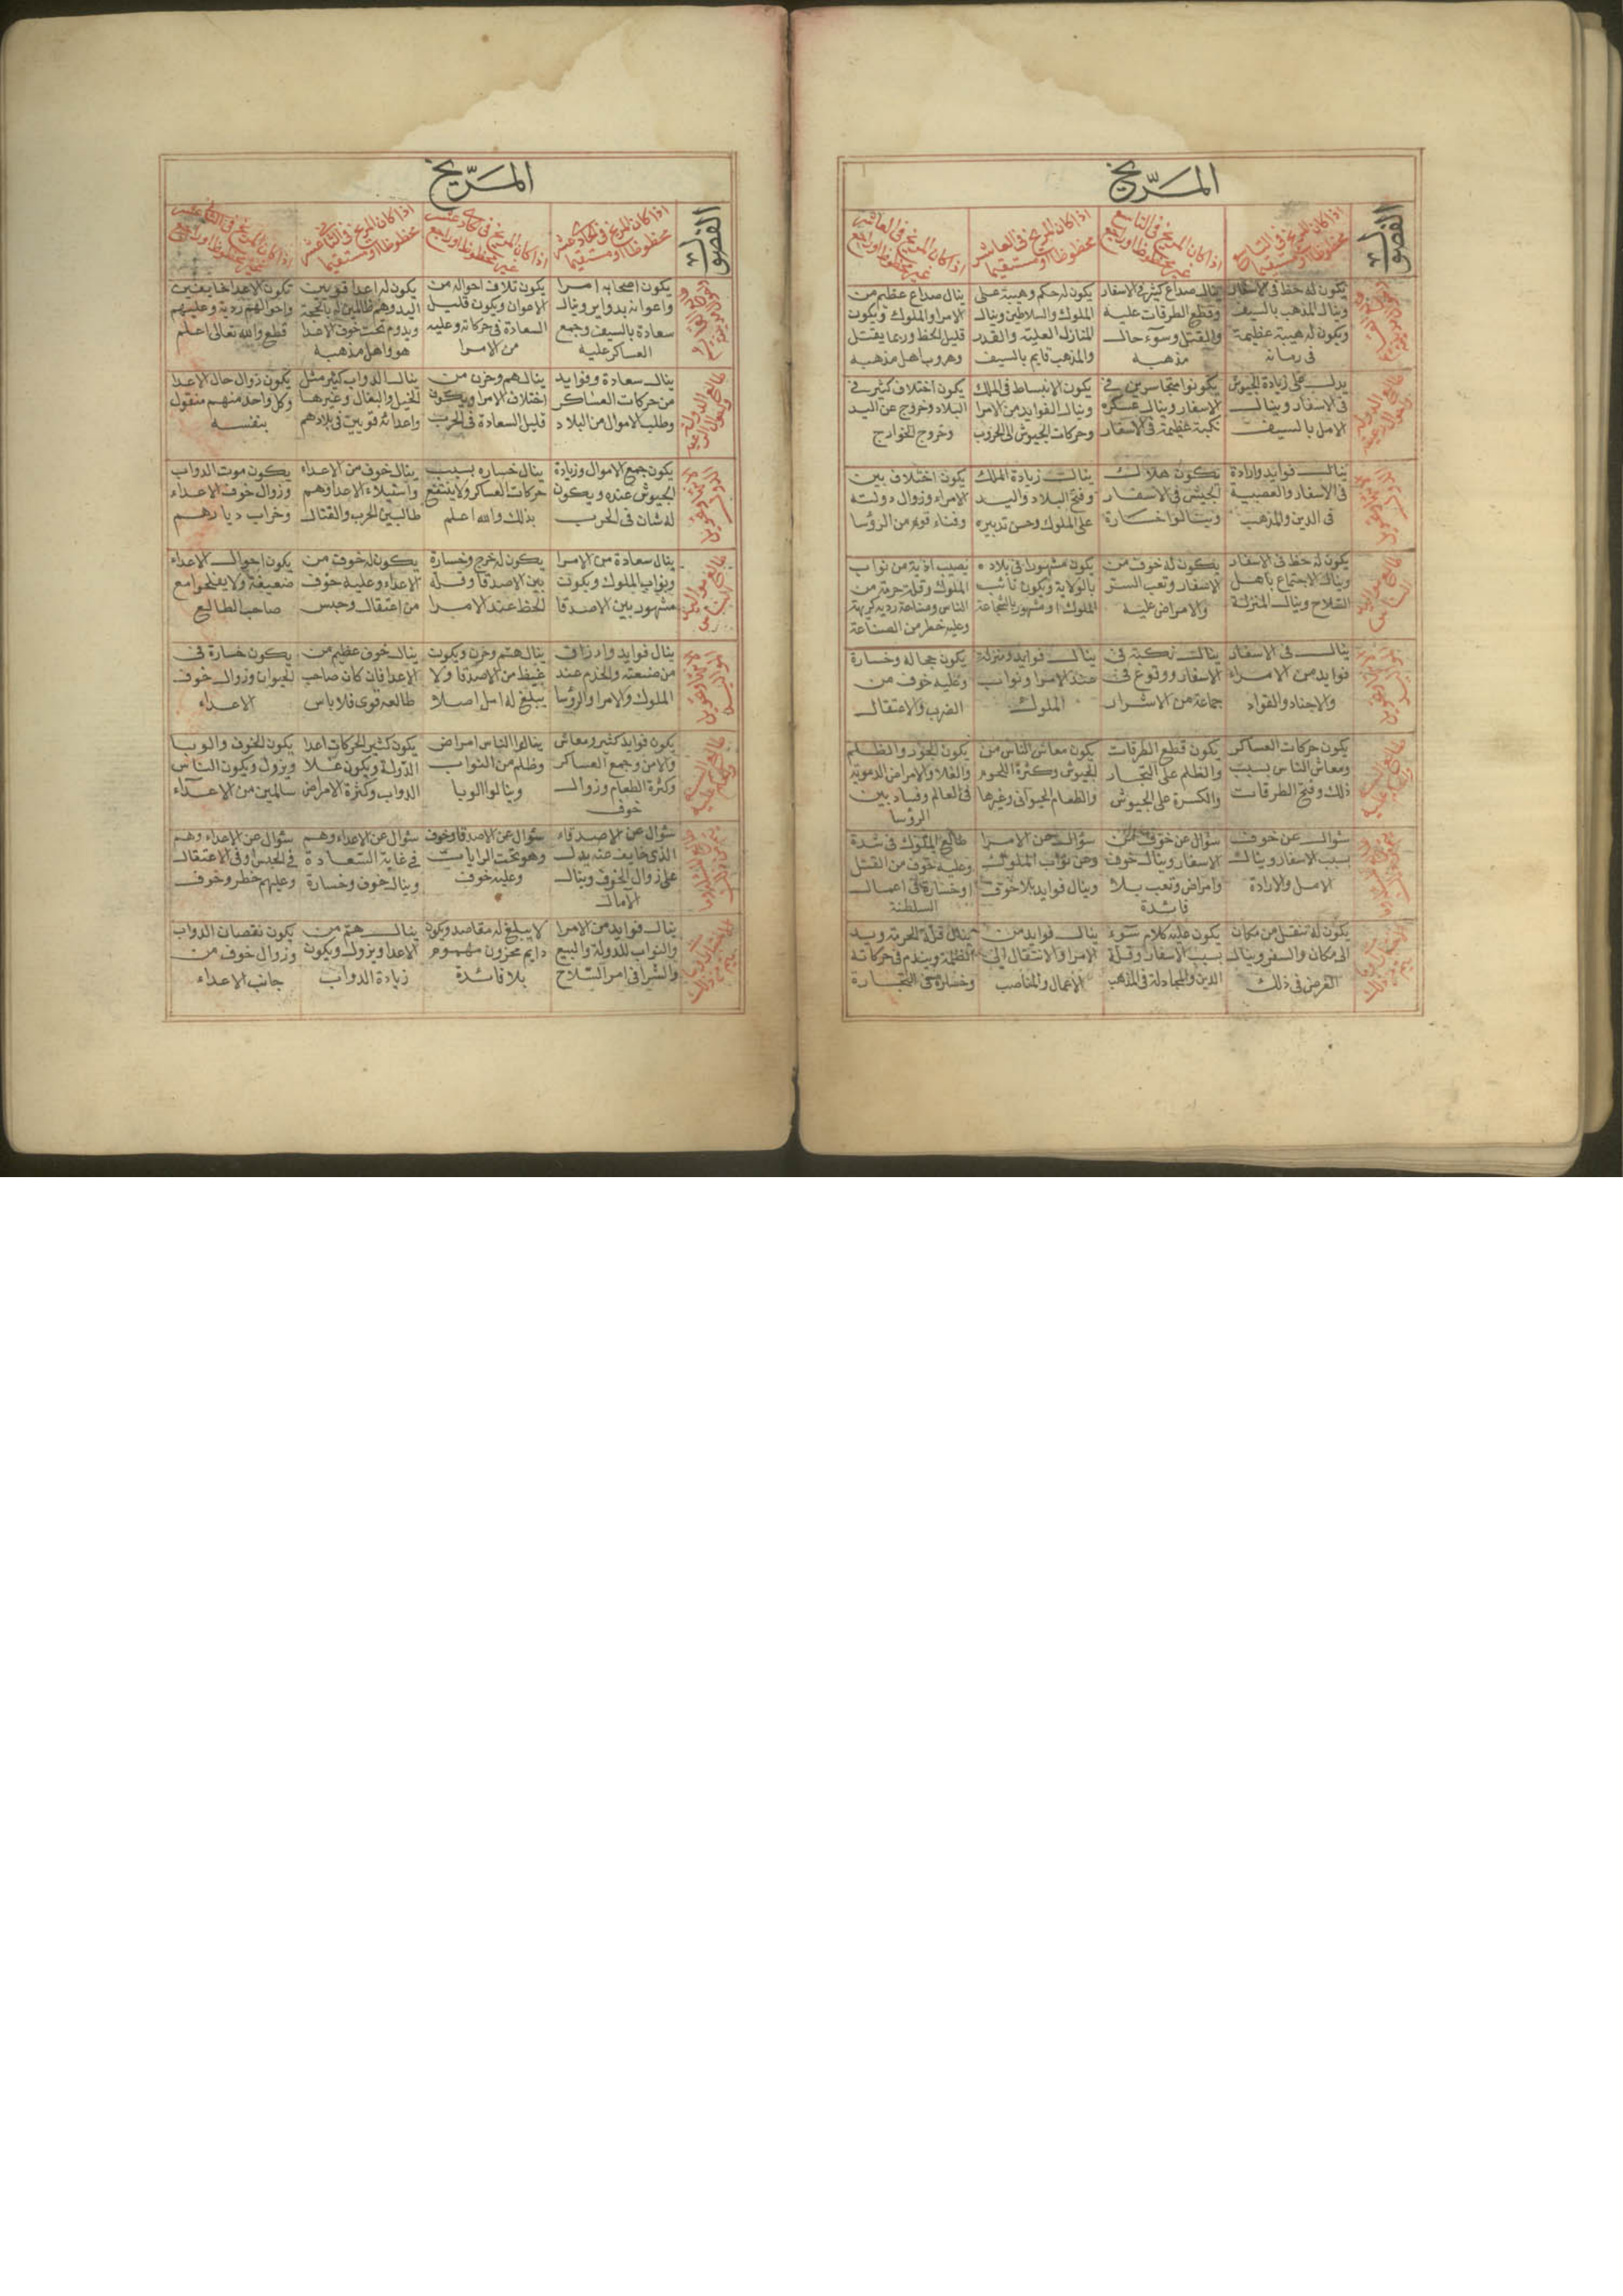 المرّيخ
الفصول
اذا كان المريخ في التاسع
محظوظا او مستقيما
اذا كان المريخ في التاسع
غير محظوظ او راجع
اذا كان المريخ في العاشر
محظوظا او مستقيما
اذا كان المريخ في العاشر
غير محظوظ او راجع
يكون له حظ في الاسفار
وينال المذهب بالسيف
ويكون له هيبة عظيمة
في زمانه
ينال صداع كثير في الاسفار
وقطع الطرقات عليه
والقتل وسوء حال
مذهبه
يكون له حكم وهيبة على
الملوك والسلاطين وينال
المنازل العلية والقدر
والمذهب قايم بالسيف
ينال صداع عظيم من
الامرا والملوك ويكون
قليل الحظ وربما يقتل
وهروب اهل مذهبه
يدل على زيادة الجيوش
في الاسفار وينال
الامل بالسيف
يكونوا متجاسرين في
الاسفار وينال عسكره
نكبة عظيمة في الاسفار
يكون الانبساط في الملك
وينال الفوايد من الامرا
وحركات الجيوش الى الحروب
يكون اختلاف كثير في
البلاد وخروج عن اليد
وخروج الخوارج
ينال فوايد وارادة
في الاسفار والعصبية
في الدين والمذهب
يكون هلاك
الجيش في الاسفار
وينالوا خسارة
ينال زيادة الملك
وفتح البلاد واليد
على الملوك وحسن تدبيره
يكون اختلاف بين
الامراء وزوال دولته
وفناء قوم من الرؤسا
يكون له حظ في الاسفار
وينال الاجتماع باهل
الفلاح وينال المنزلة
يكون له خوف من
الاسفار وتعب السفر
والامراض عليه
يكون مشهورا في بلاده
بالولاية ويكون نائب
الملوك او مشهور بالشجاعة
يصيب اذية من نواب
الملوك وقلة حرمة من
الناس وصناعة رديه كريهة
وعليه خطر من الصناعة
ينال في الاسفار
فوايد من الامراء
والاجناد والقواد
ينال نكبة في
الاسفار ووقوع في
جماعة من الاشرار
ينال فوايد ومنزلة
عند الامرا ونواب
الملوك
يكون جماله وخسارة
وعليه خوف من
الضرب والاعتقال
يكون حركات العساكر
ومعاش الناس بسبب
ذلك وفتح الطرقات
يكون قطع الطرقات
والظلم على التجار
والكسرة على الجيوش
يكون معاش الناس من
الجيوش وكثرة اللحوم
والطعام الحيواني وغيرها
يكون الجور والظلم
والغلاء والامراض الدموية
في العالم وفساد بين
الرؤسا
سؤال عن خوف
بسبب الاسفار وينال
الامل والارادة
سؤال عن خوف من
الاسفار وينال خوف
وامراض وتعب بلا
فائدة
سؤال عن الامرا
وعن نواب الملوك
وينال فوايد بلا خوف
طالع الملوك في شدة
وعليه خوف من القتل
او خسارة في اعمال
السلطنة
يكون له تنقل من مكان
الى مكان والسفر وينال
الغرض في ذلك
يكون عليه كلام سوء
بسبب الاسفار وقلة
الدين والمجادلة في المذهب
ينال فوايد من
الامرا والانتقال الى
الاعمال والمناصب
ينال قلة الحرمة ويد
الظلمة ويندم في حركاته
وخسارة في التجارة
المرّيخ
الفصول
اذا كان المريخ في الحادي عشر
محظوظا او مستقيما
اذا كان المريخ في الحادي عشر
غير محظوظ او راجع
اذا كان المريخ في الثاني عشر
محظوظا او مستقيما
اذا كان المريخ في الثاني عشر
غير محظوظ او راجع
يكون اصحابه امرا
واعوانه بدواير وينال
سعادة بالسيف وجمع
العساكر عليه
يكون تلاف احواله من
الاعوان ويكون قليل
السعادة في حركاته وعليه
من الامرا
يكون له اعدا قويين
اليد وهم ظالمين له بالحجة
ويدوم تحت خوف الاعدا
هو واهل مذهبه
تكون الاعدا خايفين
واحوالهم ردية وعليهم
قطع والله تعالى اعلم
ينال سعادة وفوايد
من حركات العساكر
وطلب الاموال من البلاد
ينال هم وحزن من
اختلاف الامرا ويكون
قليل السعادة في الحرب
ينال الدواب كثير مثل
الخيل والبغال وغيرها
واعدائه قويين في بلادهم
يكون زوال حال الاعدا
وكل واحد منهم مشغول
بنفسه
يكون جمع الاموال وزيادة
الجيوش عنده ويكون
له شان في الحرب
ينال خساره بسبب
حركات العساكر ولا ينتفع
بذلك والله اعلم
ينال خوف من الاعداء
واستيلاء الاعدا وهم
طالبين الحرب والقتال
يكون موت الدواب
وزوال خوف الاعداء
وخراب ديارهم
ينال سعادة من الامرا
ونواب الملوك ويكون
مشهور بين الاصدقا
يكون له خرج وخسارة
بين الاصدقا وقلة
الحظ عند الامرا
يكون له خوف من
الاعداء وعليه خوف
من اعتقال وحبس
يكون احوال الاعداء
ضعيفة ولا يفلحوا مع
صاحب الطالع
ينال فوايد وارزاق
من صنعته والخدم عند
الملوك والامرا والرؤسا
ينال هم وحزن ويكون
غيظ من الاصدقا ولا
يبلغ له امل اصلا
ينال خوف عظيم من
الاعدا فان كان صاحب
طالعه قوي فلا باس
يكون خسارة في
الحيوان وزوال خوف
الاعداء
يكون فوايد كثير ومعاش
والامن وجمع العساكر
وكثرة الطعام وزوال
خوف
ينالوا الناس امراض
وظلم من النواب
وينالوا الوبا
يكون كثير الحركات اعدا
الدولة ويكون غلا
الدواب وكثرة الامراض
يكون الخوف والوبا
ويزول ويكون الناس
سالمين من الاعداء
سؤال عن الاصدقاء
الذي خايف عنه يدل
على زوال الخوف وينال
الآمال
سؤال عن الاصدقا وخوف
وهو تحت الرايات
وعليه خوف
سؤال عن الاعداء وهم
في غاية السعادة
وينال خوف وخسارة
سؤال عن الاعداء وهم
في الحبس وفي الاعتقال
وعليهم خطر وخوف
ينال فوايد من الامرا
والنواب للدولة والبيع
والشرا في امر السلاح
لا يبلغ له مقاصد ويكون
دايم محزون مهموم
بلا فائدة
ينال هم من
الاعدا ويزول ويكون
زيادة الدواب
يكون نقصان الدواب
وزوال خوف من
جانب الاعداء